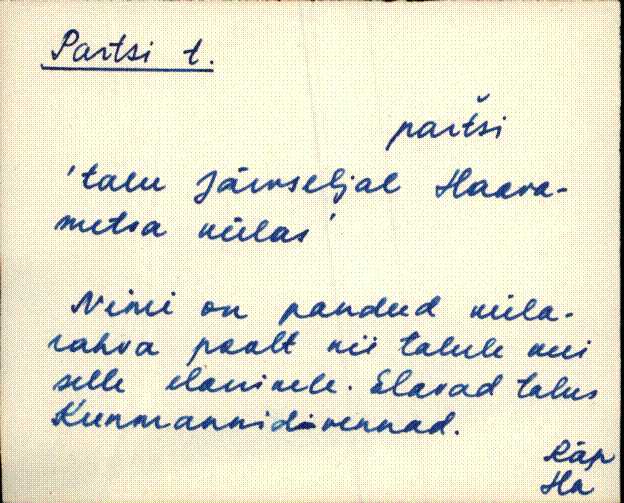 Partsi t.
partši
'talu Järvseljal Haava-
metsa külas'
Nimi on pandud küla-
rahva poolt nii talule kui
selle elanikele. Elavad talus
Kunmannid-vennad.
Räp
Ha